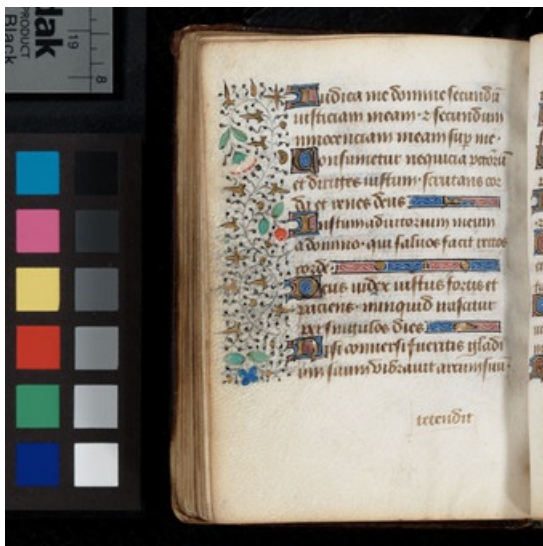 dak
PRODUCT
Black
19
8
Iudica me domine secundū
iusticiam meam · ⁊ secundum
innocenciam meam sup me ·
Consumetur nequicia
et diriges iustum · scrutans cor
da et renes deus
Iustum adiutorium meum
a domino · qui saluos facit rectos
corde ·
Deus iudex iustus fortis et
paciens · nunquid irascitur
per singulos dies
Nisi conuersi fueritis gladi
um suum vibrauit arcum suū ·
tetendit